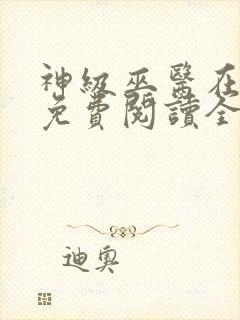 神級巫醫在
免費閱讀全
迪奧